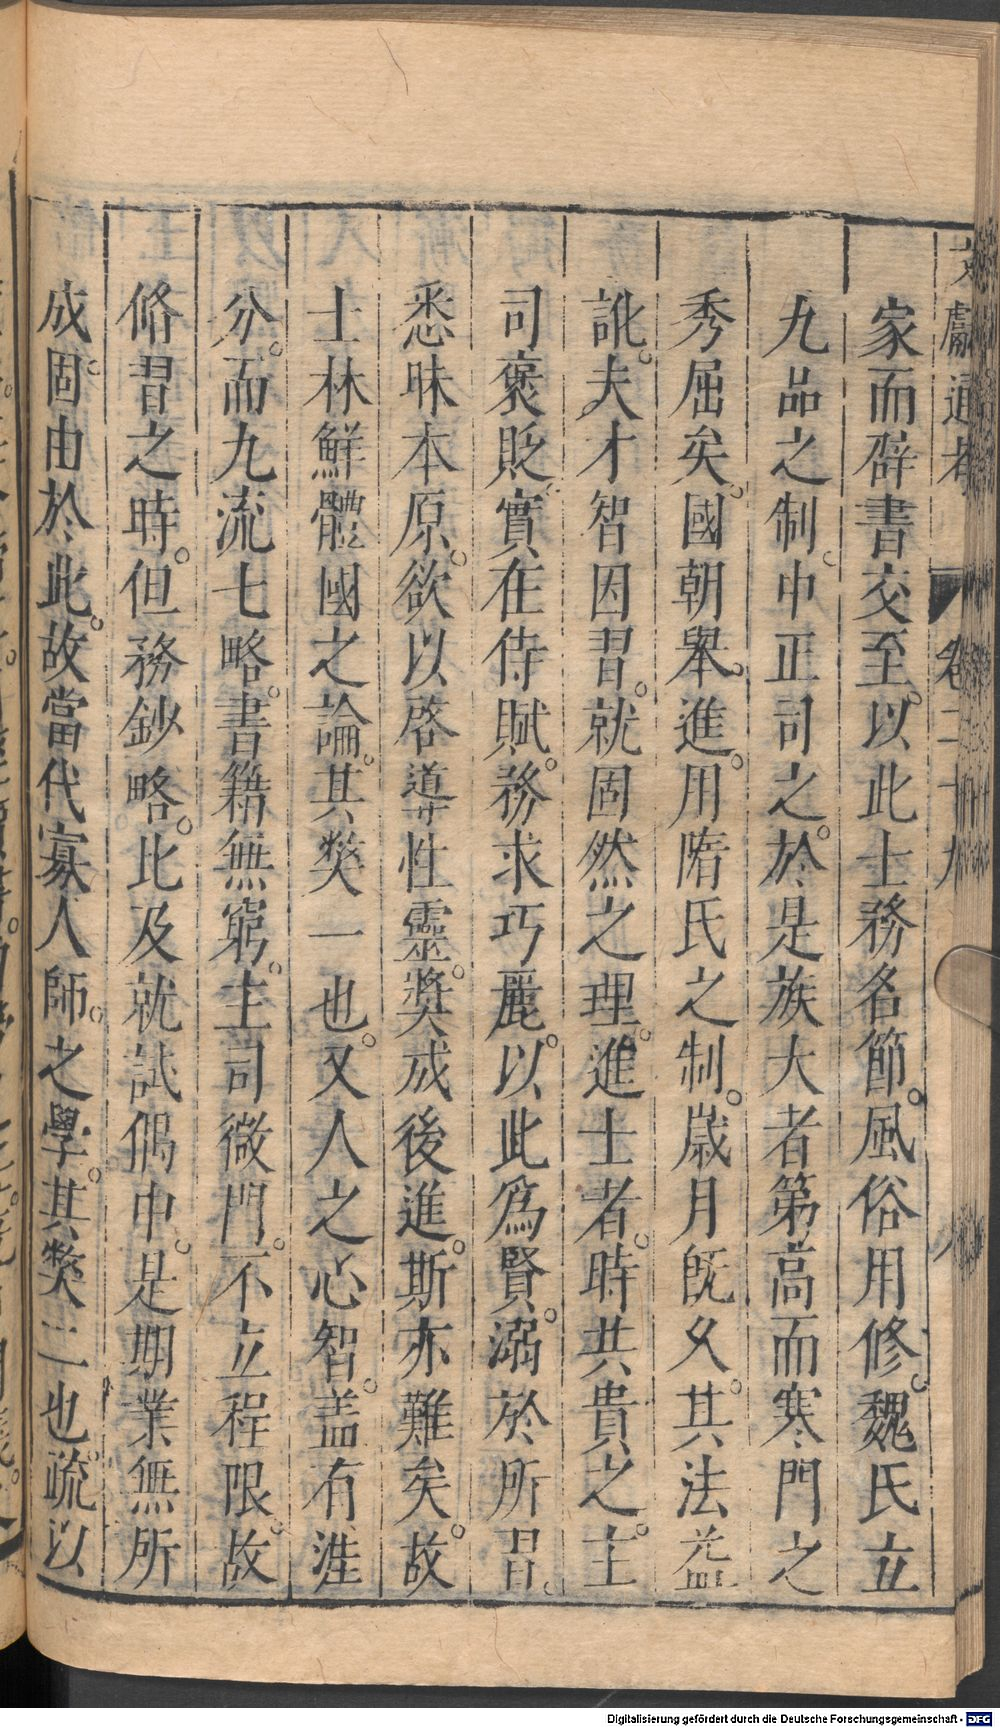 文獻通考 卷二十九 八
家而辟書交至。以此士務名節。風俗用修。魏氏立
九品之制。中正司之。於是族大者第高而寒門之
秀屈矣。國朝舉。進。用隋氏之制。歳月既久。其法益
訛。夫才智因習。就固然之理。進士者。時共貴之。主
司褒貶。實在侍賦。務求巧麗。以此爲賢。溺於所習。
悉昧本原。欲以啓導性靈。奨成後進。斯亦難矣。故
士林鮮體國之論。其獘一也。又人之心智。盖有涯
分。而九流七略。書籍無窮。主司徴門。不立程限。故
脩習之時。但務鈔略。比及就試。偶中。是期業無所
成。固由於此。故當代寡人師。之學。其獘二也。疏以
Digitalisierung gefördert durch die Deutsche Forschungsgemeinschaft - DFG